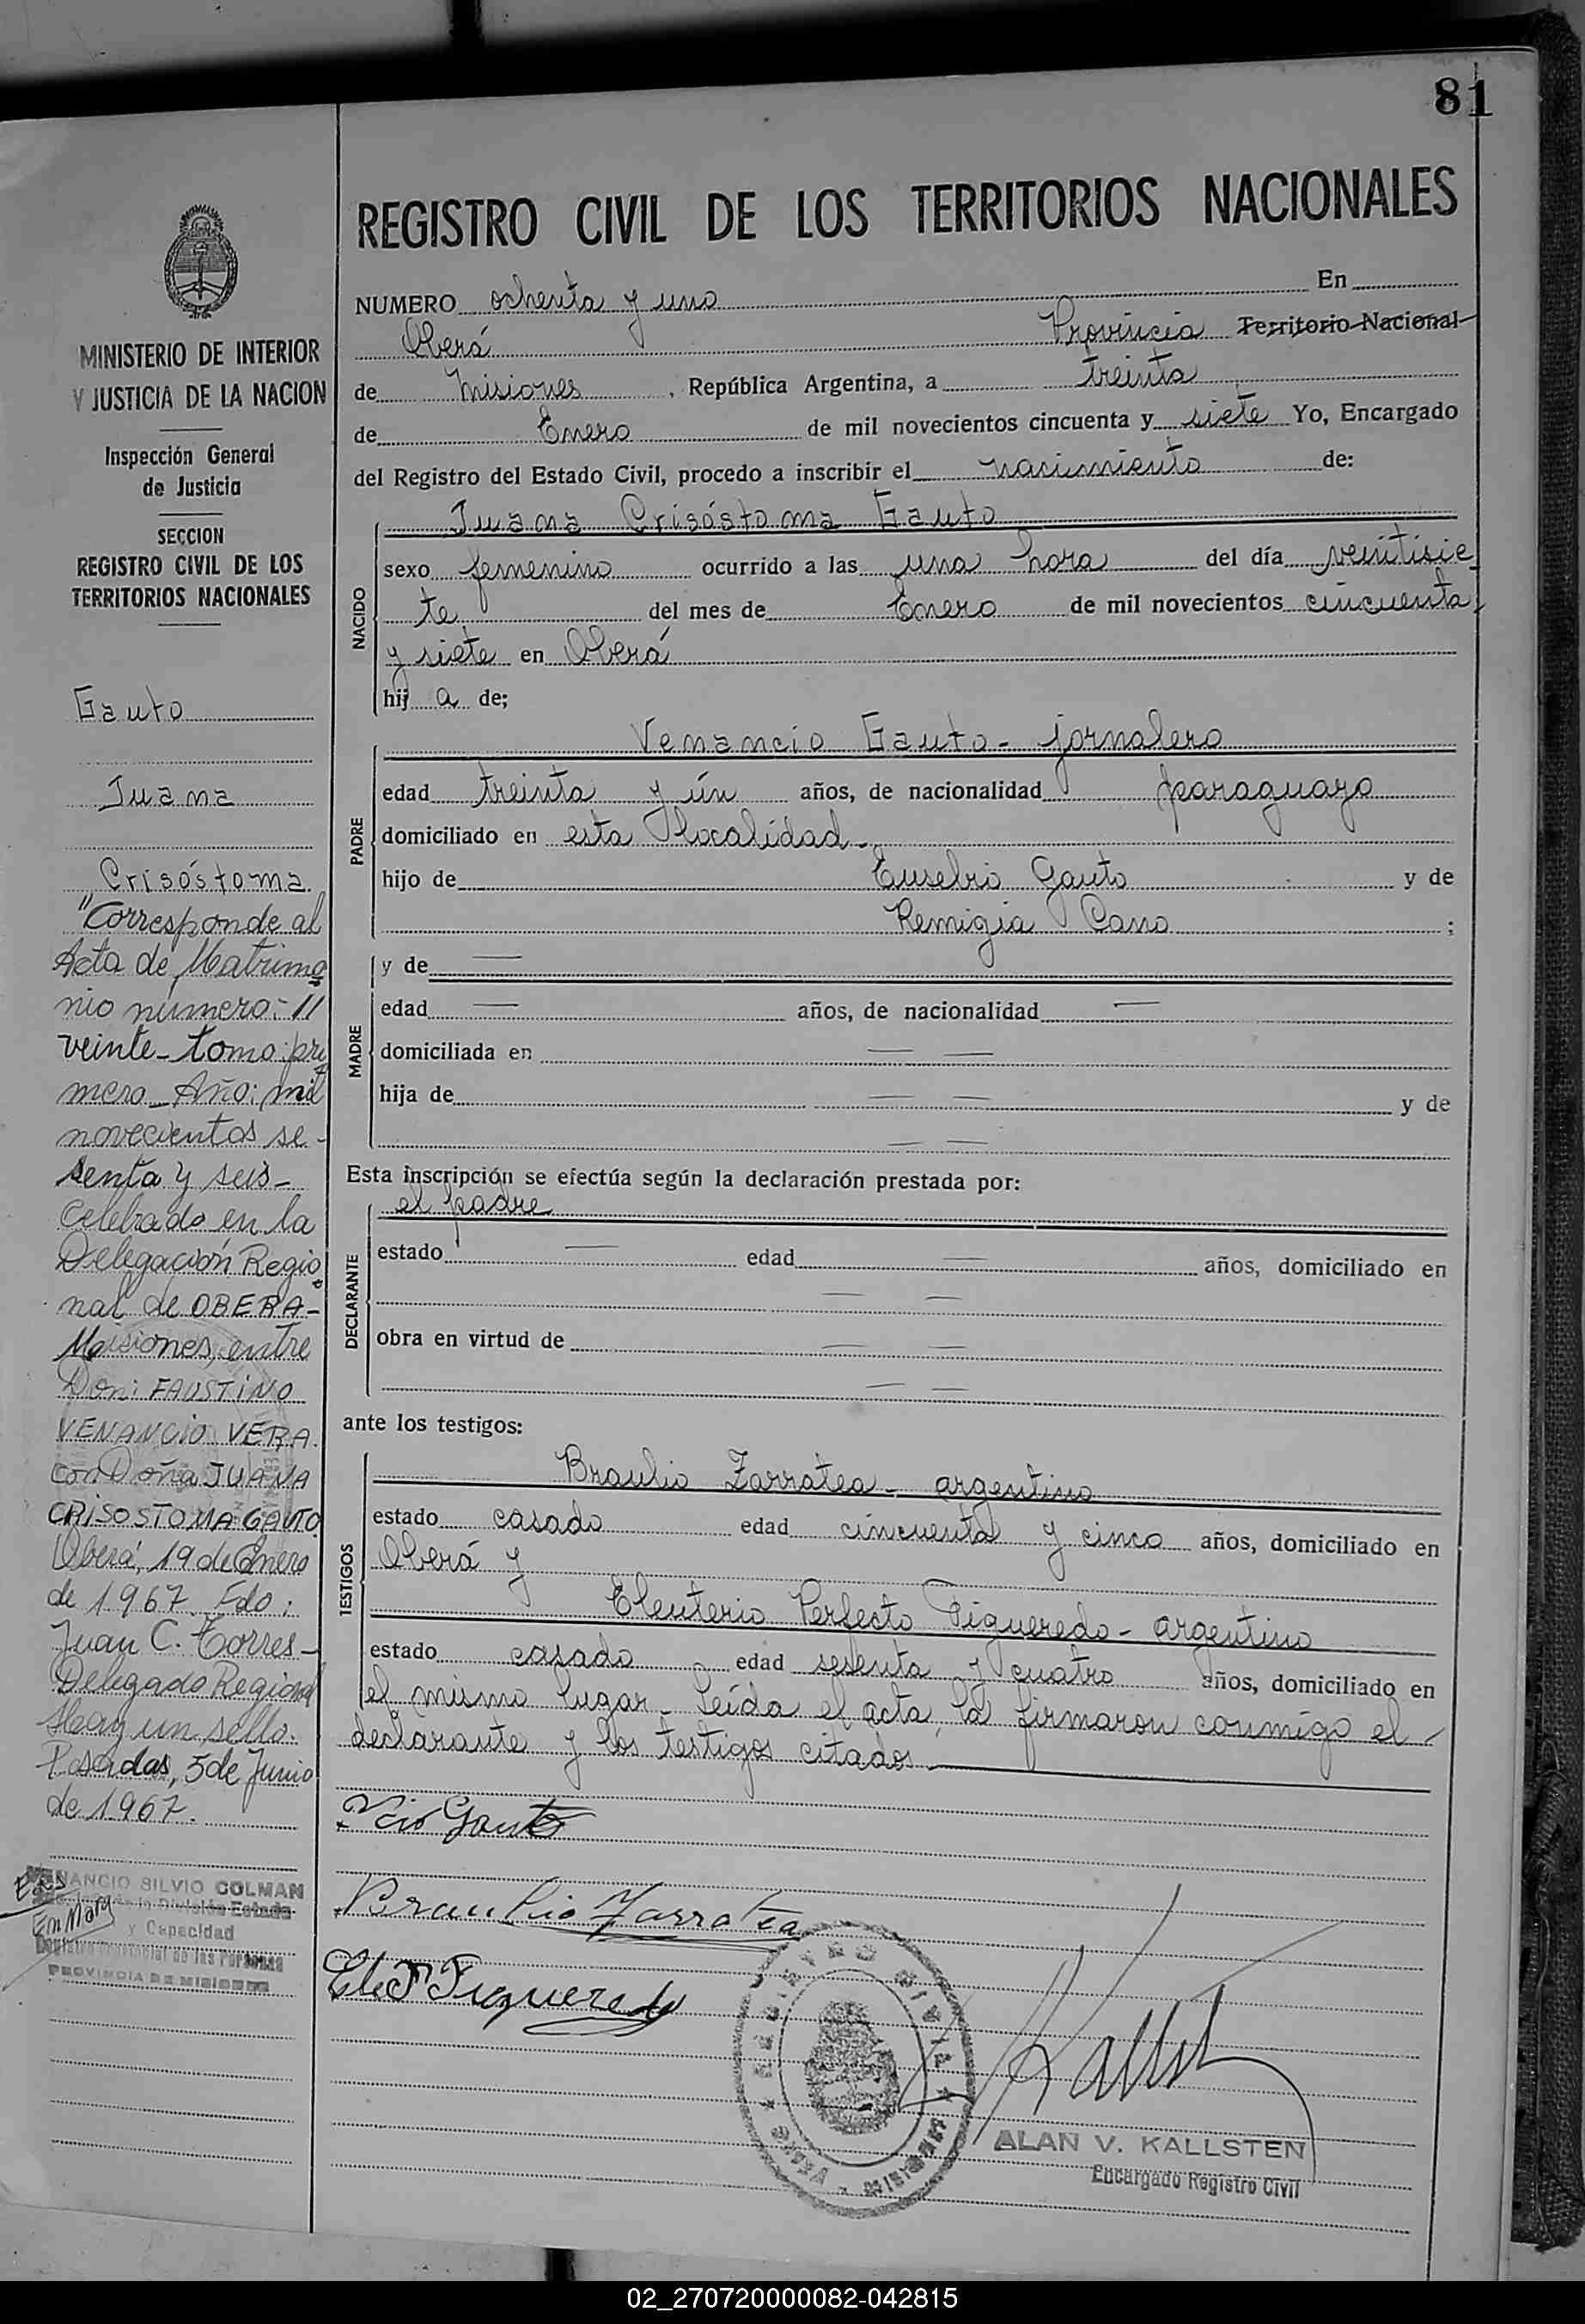 81
REGISTRO CIVIL DE LOS TERRITORIOS NACIONALES
MINISTERIO DE INTERIOR
Y JUSTICIA DE LA NACION
Inspección General
de Justicia
SECCION
REGISTRO CIVIL DE LOS
TERRITORIOS NACIONALES
Gauto
Juana
Crisóstoma.
"Corresponde al
Acta de Matrimo
nio número: 11
veinte - tomo: pri
mero - Año: mil
novecientos se-
senta y seis -
Celebrado en la
Delegación Regio
nal de OBERA -
Misiones, entre
Don: FAUSTINO
VENANCIO VERA.
con Doña JUANA
CRISOSTOMA GAUTO
Oberá, 19 de Enero
de 1967. Fdo:
Juan C. Torres -
Delegado Regional
Hay un sello.
Posadas, 5 de Junio
de 1967.
VENANCIO SILVIO COLMAN
División Estado
y Capacidad
Registro Provincial de las Personas
PROVINCIA DE MISIONES
NUMERO ochenta y uno En
Oberá Provincia Territorio Nacional
de Misiones, República Argentina, a treinta
de Enero de mil novecientos cincuenta y siete Yo, Encargado
del Registro del Estado Civil, procedo a inscribir el nacimiento de:
NACIDO
Juana Crisóstoma Gauto
sexo femenino ocurrido a las una hora del día veintisie
te del mes de Enero de mil novecientos cincuenta
y siete en Oberá
hija de;
PADRE
Venancio Gauto - jornalero
edad treinta y ún años, de nacionalidad paraguayo
domiciliado en esta localidad.
hijo de Eusebio Gauto y de
Remigia Cano ;
MADRE
y de —
edad — años, de nacionalidad —
domiciliada en — —
hija de — — y de
— —
Esta inscripción se efectúa según la declaración prestada por:
DECLARANTE
el padre
estado — edad — años, domiciliado en
— —
obra en virtud de — —
— —
ante los testigos:
TESTIGOS
Braulio Zarratea - argentino
estado casado edad cincuenta y cinco años, domiciliado en
Oberá y
Eleuterio Perfecto Figueredo - argentino
estado casado edad sesenta y cuatro años, domiciliado en
el mismo lugar. Leída el acta, la firmaron conmigo el
declarante y los testigos citados.
Vcio Gauto
Braulio Zarratea
Ele P Figueredo
REGISTRO CIVIL
OBERA MISIONES
Kallst
ALAN V. KALLSTEN
Encargado Registro Civil
02_270720000082-042815